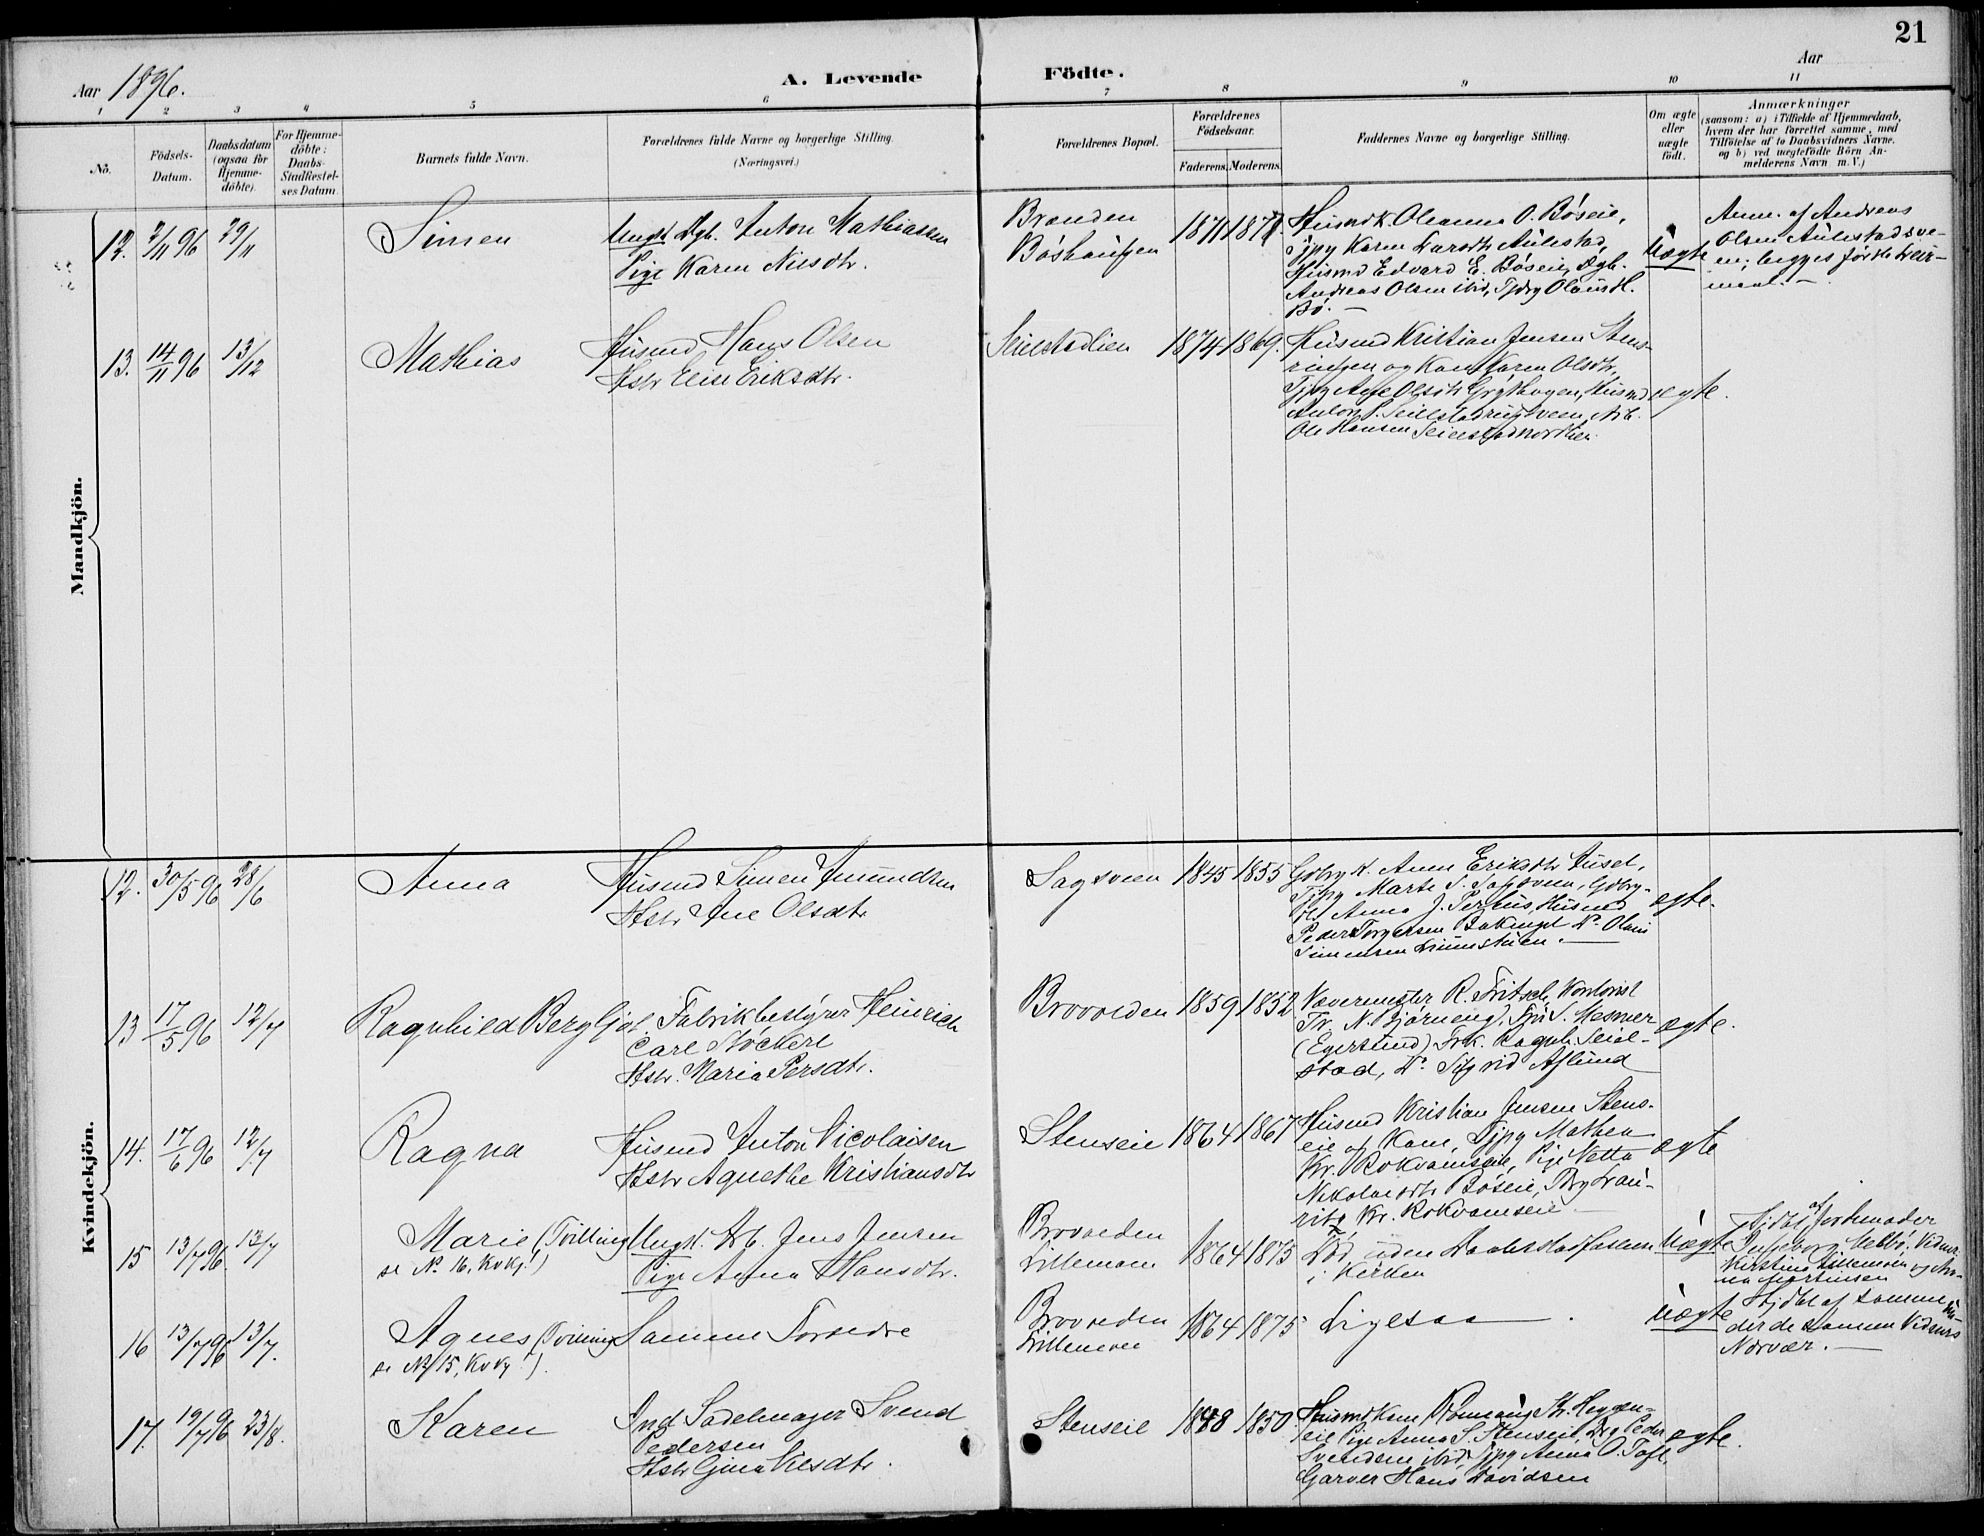 21
Aar 1896.
A. Levende Födte.
Aar
1 2 3 4 5 6 7 8 9 10 11
No.
Födsels-
Datum.
Daabsdatum
(ogsaa for
Hjemme-
döbte).
For Hjemme-
döbte:
Daabs-
Stadfæstel-
ses Datum.
Barnets fulde Navn.
Forældrenes fulde Navne og borgerlige Stilling.
(Næringsvei.)
Forældrenes Bopæl.
Forældrenes
Födselsaar.
Faderens. Moderens.
Faddernes Navne og borgerlige Stilling.
Om ægte
eller
uægte
födt.
Anmærkninger
(saasom: a) i Tilfælde af Hjemmedaab,
hvem der har forrettet samme, med
Tilföielse af to Daabsvidners Navne,
og b) ved uægtefödte Börn An-
melderens Navn m. V.)
Mandkjön.
12. 2/11 96 29/11
Simen
Ungk Dgb. Anton Mathiassen
Pige Karen Nilsdtr.
Brænden
Böshaugen
1871 1877
Husmdk. Oleanna O. Böseie,
Tjpg Karen Larsdtr Aulestad,
Husmd Edvard E. Böseie, Dgb.
Andreas Olsen ibid, Tjdrg Olaus H.
Bö.
Uægte
Anm. af Andreas
Olsen Aulestadsve-
en; begges förste Leier-
maal.
13. 14/11 96 13/12
Mathias
Husmd Hans Olsen
Hstr Elise Eriksdtr.
Seielstadlien
1874 1869.
Husmd Kristian Jensen Stens-
og Kone Karen Olsdtr,
Tjpg Olsdtr Husmd
Anton S. Arb.
Ole Hansen
ægte.
Kvindekjön.
12. 30/5 96 28/6
Anna
Husmd Simen Amundsen
Hstr Ane Olsdtr
Sagsveen
1845 1855
Gdbrg K. Anne Eriksdtr
Tjpg Marte S. Sagsveen, Gdbrg-
Anna J. Husmd
Peder Torgersen Do Olaus
Simensen
ægte.
13 17/5 96 12/7
Ragnhild Bergljot
Fabrikbestyrer Heinrich
Carl Köckerl
Hstr. Maria Persdtr.
Brovolden
1859 1852
Vævermester R. Fritsch, Kontorist
Fr. N. Bjørneng, S. Mesner
(Egersund) Frk. Ragnh. Seiel-
stad, Do Sigrid Aslund
ægte.
14. 17/6 96 12/7
Ragna
Husmd Anton Nicolaisen
Hstr Agnethe Kristiansdtr
Stenseie
1864 1867
Husmd Kristian Jensen Stens-
eie og Kone, Tjpg Mathea
Kr. Rokvamseie, Pige Netta
Nikolaisdtr Böseie, Drg Lau-
ritz Kr. Rokvamseie
ægte
15 13/7 96. 13/7
Marie (Tvilling
se No 16, Kvkj.)
Ungk. Arb. Jens Jensen
Pige Anna Hansdtr.
Brovolden
Lillemoen
1864 1875
Död uden Daabsstadfæstelse
i Kirken
Uægte
Hjdbt af Jordmoder
Ingeborg Vidner
Kirstine Lillemoen og An-
na Mortinsen
16 13/7 96 13/7.
Agnes (Tvilling
se No 15, Kvkj.).
Samme Forældre
Brovolden
Lillemoen
1864 1875
Ligesaa
Uægte
Hjdbt af samme un-
der de samme Vidners
Nærvær.
17. 19/7 96 23/8.
Karen
Ind. Sadelmager Svend
Pedersen
Hstr Gina Nilsdtr.
Stenseie
1848 1850
Husmdkone Kr. Heggen-
eie Pige Anna S. Stenseie Drg Peder
Svendsen ibid Tjpg Anna O.
Garver Hans Davidsen
ægte.